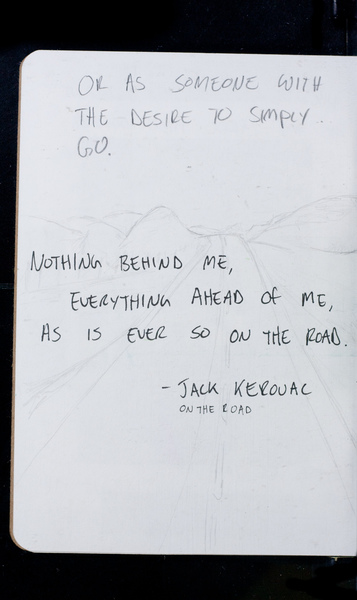 OR AS SOMEONE WITH
THE DESIRE TO SIMPLY..
GO.
NOTHING BEHIND ME,
EVERYTHING AHEAD OF ME,
AS IS EVER SO ON THE ROAD.
- JACK KEROUAC
ON THE ROAD